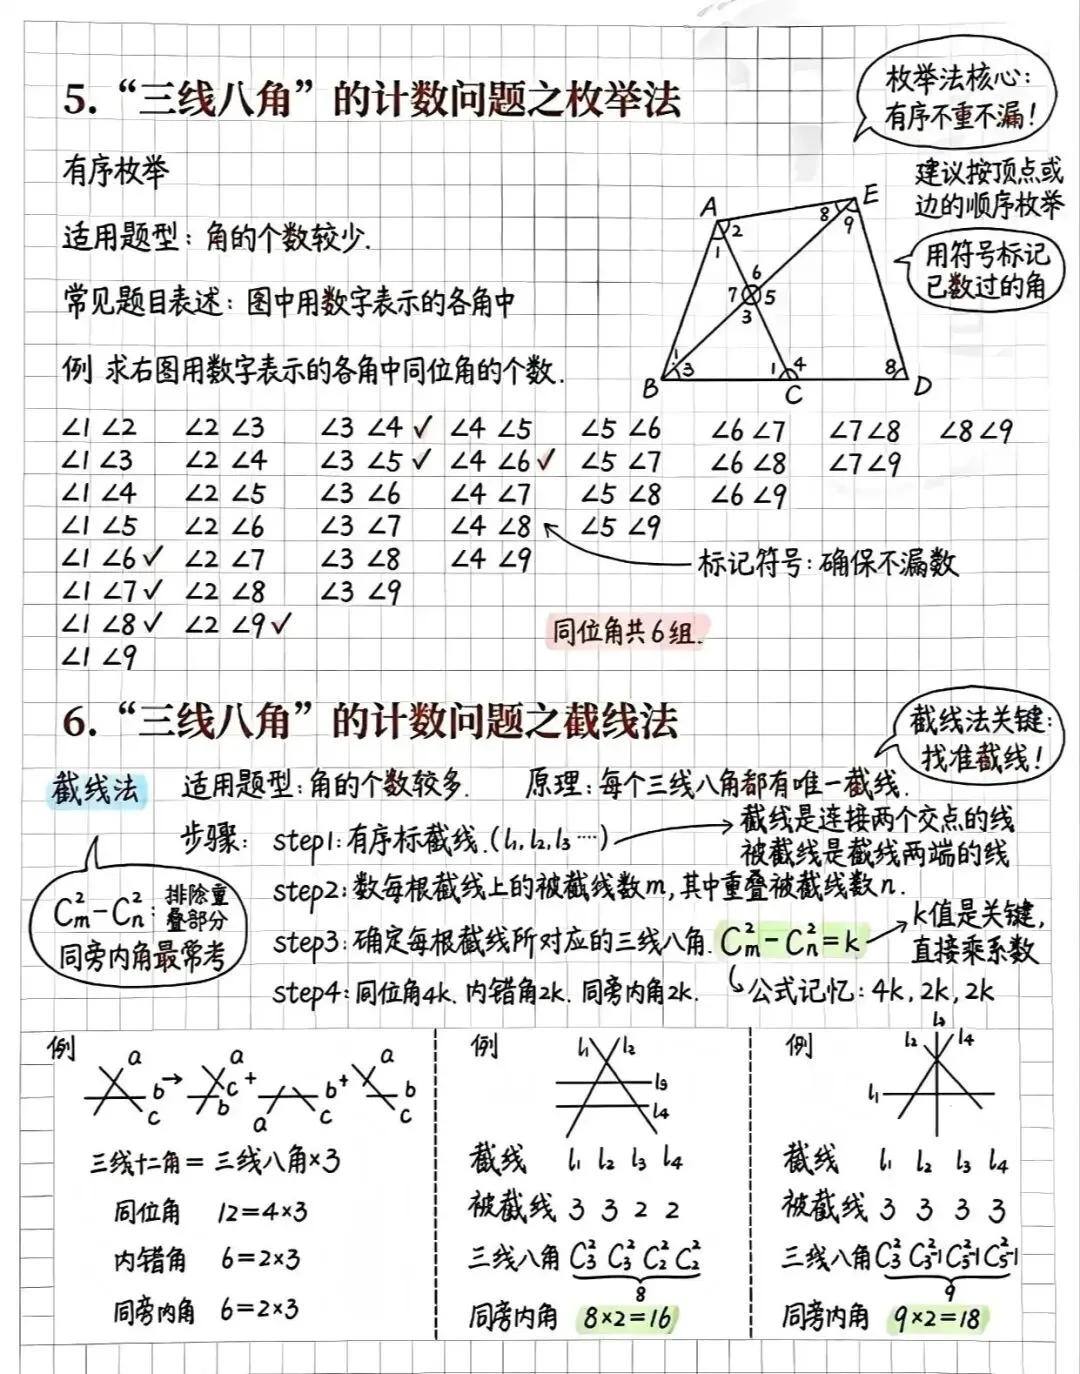 5. “三线八角”的计数问题之枚举法
枚举法核心:
有序不重不漏!
有序枚举
建议按顶点或
边的顺序枚举
适用题型: 角的个数较少.
用符号标记
已数过的角
常见题目表述: 图中用数字表示的各角中
例 求右图用数字表示的各角中同位角的个数.
A E
2 8 9
1
6
7 5
3
1 3 1 4 8
B C D
∠1 ∠2 ∠2 ∠3 ∠3 ∠4 ✓ ∠4 ∠5 ∠5 ∠6 ∠6 ∠7 ∠7 ∠8 ∠8 ∠9
∠1 ∠3 ∠2 ∠4 ∠3 ∠5 ✓ ∠4 ∠6 ✓ ∠5 ∠7 ∠6 ∠8 ∠7 ∠9
∠1 ∠4 ∠2 ∠5 ∠3 ∠6 ∠4 ∠7 ∠5 ∠8 ∠6 ∠9
∠1 ∠5 ∠2 ∠6 ∠3 ∠7 ∠4 ∠8 ∠5 ∠9
∠1 ∠6 ✓ ∠2 ∠7 ∠3 ∠8 ∠4 ∠9
标记符号: 确保不漏数
∠1 ∠7 ✓ ∠2 ∠8 ∠3 ∠9
∠1 ∠8 ✓ ∠2 ∠9 ✓
∠1 ∠9
同位角共6组.
6. “三线八角”的计数问题之截线法
截线法关键:
找准截线!
截线法 适用题型: 角的个数较多. 原理: 每个三线八角都有唯一截线.
步骤: step1: 有序标截线.(l₁, l₂, l₃ ····)
截线是连接两个交点的线
被截线是截线两端的线
step2: 数每根截线上的被截线数m, 其中重叠被截线数n.
step3: 确定每根截线所对应的三线八角. C²ₘ-C²ₙ=k
k值是关键,
直接乘系数
step4: 同位角4k. 内错角2k. 同旁内角2k. 公式记忆: 4k, 2k, 2k
C²ₘ-C²ₙ: 排除重
叠部分
同旁内角最常考
例
a b c → a c b + a b c + a b c
三线十二角= 三线八角×3
同位角 12=4×3
内错角 6=2×3
同旁内角 6=2×3
例
l₁ l₂
l₃
l₄
截线 l₁ l₂ l₃ l₄
被截线 3 3 2 2
三线八角 C²₃ C²₃ C²₂ C²₂
8
同旁内角 8×2=16
例
l₃
l₂ l₄
l₁
截线 l₁ l₂ l₃ l₄
被截线 3 3 3 3
三线八角 C²₃ C²₃-1 C²₃-1 C²₃-1
9
同旁内角 9×2=18